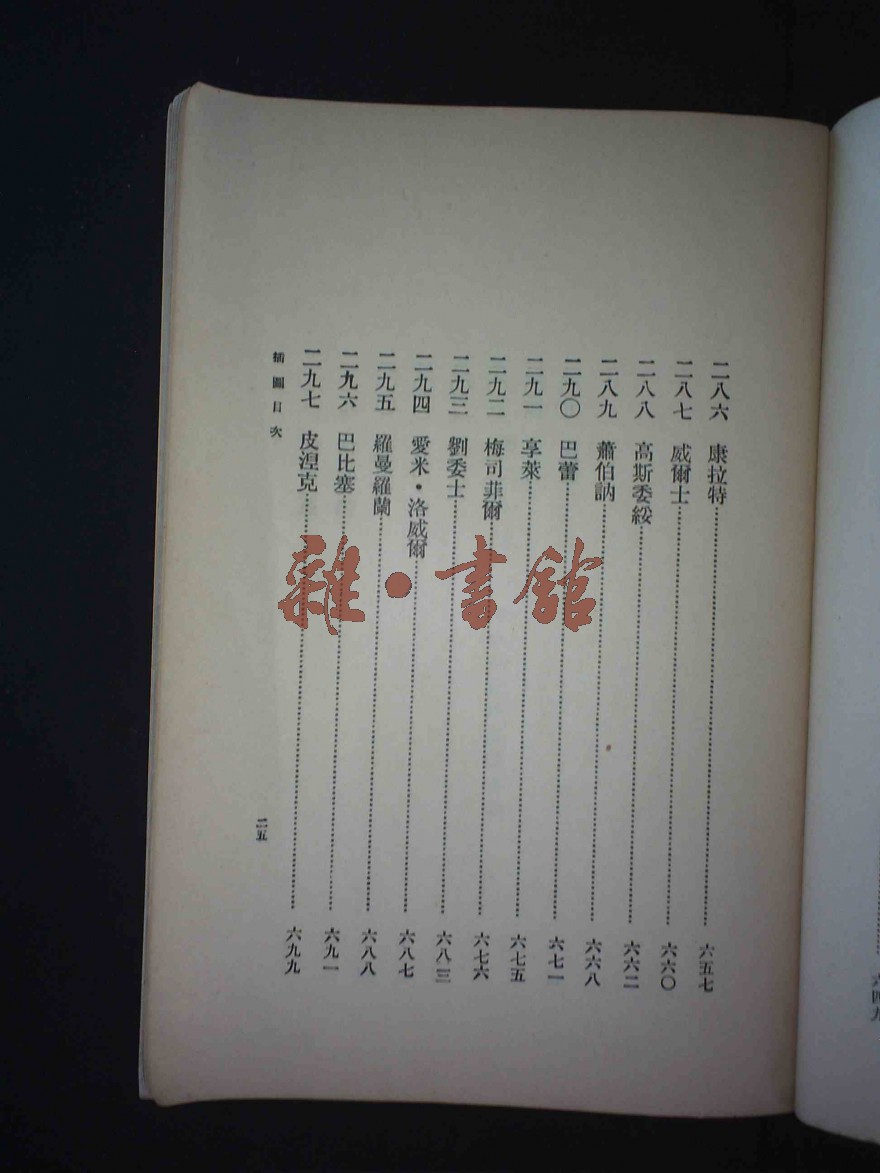 二八六 康拉特 六五七
二八七 威爾士 六六〇
二八八 高斯委綏 六六二
二八九 蕭伯訥 六六八
二九〇 巴蕾 六七一
二九一 享萊 六七五
二九二 梅司菲爾 六七六
二九三 劉委士 六八三
二九四 愛米·洛威爾 六八七
二九五 羅曼羅蘭 六八八
二九六 巴比塞 六九一
二九七 皮湼克 六九九
插圖目次
二五
雜·書館
六四九